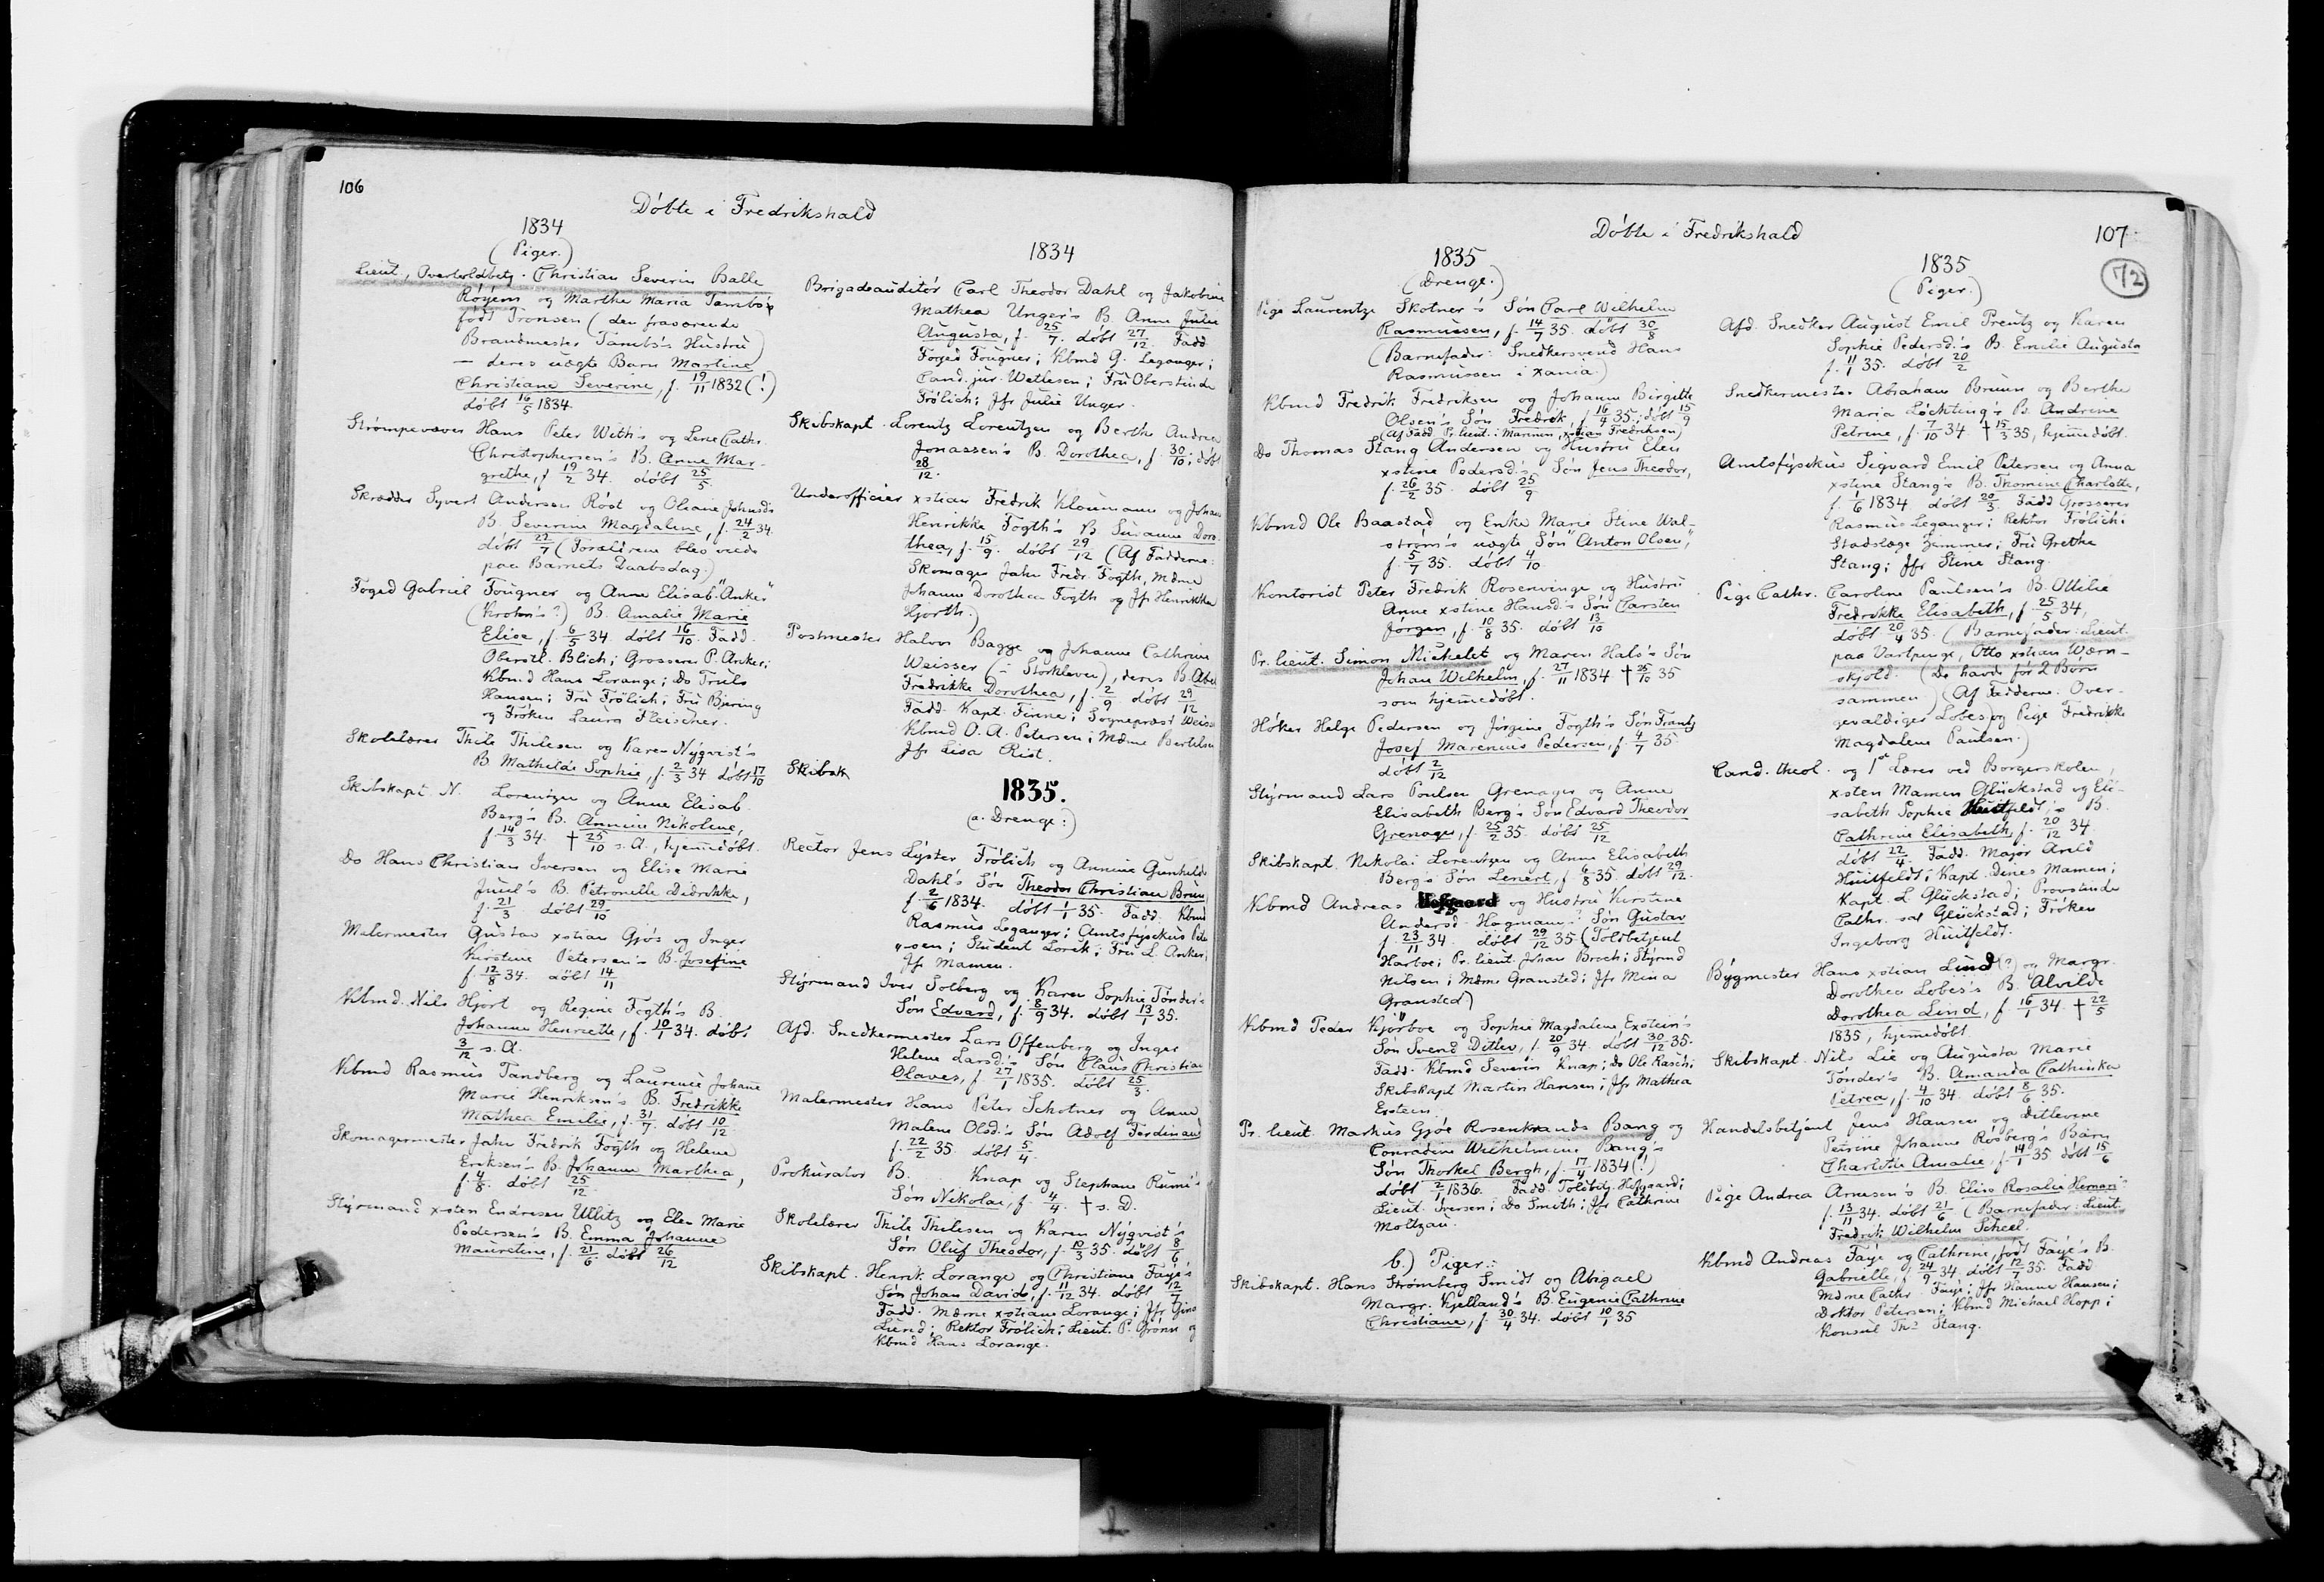 106
Döbte i Fredrikshald
1834
(Piger.)
Lieut., Overtoldbetj. Christian Severin Balle
Röyem og Marthe Maria Tambs's
född Tronsen (den fraværende
Brandmester Tambs's Hustru)
— deres uægte Barn Martine
Christiane Severine, f. 19/11 1832 (!)
döbt 16/5 1834.
Strömpevæver Hans Peter With's og Lene Cath.
Christophersen's B. Anne Mar-
grethe, f 19/2 34. döbt 25/5.
Skrædder Syvert Andersen Röst og Oliane Johnsd's
B. Severine Magdalene, f. 24/2 34.
döbt 27/7 (Forældrene blev viede
paa Barnets Daabsdag.)
Foged Gabriel Fougner og Anne Elisab. "Anker"
(Krohn's?) B. Amalie Marie
Elise, f. 6/5 34. döbt 16/10. Fadd.
Oberstl. Blich; Grosserer P. Anker;
Kbmd Hans Lorange; do Truls
Hansen; Fru Frölich; Fru Bjering
og Fröken Laura Fleischer.
Skolelærer Thile Thilesen og Karen Nyqvist's
B. Mathilde Sophie, f. 2/3 34 döbt 17/10
Skibskapt. N. Lorentzen og Anne Elisab.
Bergs B. Annine Nikoline,
f. 14/3 34. † 25/10 s. A., hjemmedöbt.
Do Hans Christian Iversen og Elise Marie
Juul's B. Petronelle Didrikke,
f. 21/3 döbt 29/10
Malermester Gustav xstian Gjös og Inger
Kirstine Petersen's B. Josefine
f. 12/8 34. döbt 14/11
Kbmd. Nils Hjort og Regine Fogth's B.
Johanne Henriette, f. 10/1 34. döbt
3/12 s. A.
Kbmd Rasmus Tandberg og Laurence Johane
Marie Henriksen's B. Fredrikke
Mathea Emilie, f. 31/7. döbt 10/12
Skomagermester Jahn Fredrik Fogth og Helene
Eriksen's B. Johanne Marthea,
f. 4/8. döbt 25/12
Styrmand xsten Endresen Ullitz og Elen Marie
Pedersen's B. Emma Johanne
Mauretine, f. 21/6 döbt 26/12
1834
Brigadeauditör Carl Theodor Dahl og Jakobine
Mathea Unger's B. Anne Julie
Augusta, f. 25/7. döbt 27/12. Fadd
Foged Fougner; Kbmd G. Leganger;
Cand. jur. Wetlesen; Fru Oberstinde
Frölich; Jfr Julie Unger.
Skibskapt. Lorentz Lorentzen og Berthe Andrea
Jonassen's B. Dorothea, f. 30/10; döbt
28/12.
Underofficier xstian Fredrik Kloumann og Johan
Henrikke Fogth's B Susanne Doro-
thea, f. 15/9. döbt 29/12 (Af Fadderne:
Skomager Jahn Fredr. Fogth, Mdme
Johanne Dorothea Fogth og Jfr Henrikke
Hjorth.)
Postmester Halvor Bagge og Johanne Cathrine
Weisser (i Storkleven), deres B. Abel
Fredrikke Dorothea, f. 2/9 döbt 29/12
Fadd. Kapt. Finne; Sogneprest Weisse
Kbmd O. A. Petersen; Mdme Bertelsen
Jfr Lisa Rist.
Skibsk
1835.
(a. Drenge:)
Rector Jens Lyster Frölich og Annine Gunhilde
Dahl's Sön Theodor Christian Brun
f. 2/6 1834. döbt 1/1 35. Fadd. Kbmd
Rasmus Leganger; Amtsfysikus Peter
"sen; Student Lorck; Fru L. Anker;
Jfr Mamen.
Styrmand Iver Solberg og Karen Sophie Tönder's
Sön Edvard, f. 8/9 34. döbt 13/1 35.
Afd. Snedkermester Lars Offenberg og Inger
Helene Larsd.'s Sön Claus Christian
Olaves, f. 27/1 1835. döbt 25/3.
Malermester Hans Peter Schotner og Anne
Malene Olsd.'s Sön Adolf Ferdinand
f. 22/2 35. döbt 5/4.
Prokurator B. Knap og Stephane Rumi's
Sön Nikolai, f. 4/4. † s. D.
Skolelærer Thile Thilesen og Karen Nyqvist's
Sön Oluf Theodor, f. 10/3 35. döbt 8/6
Skibskapt. Henrik Lorange og Christiane Faye's
Sön Johan David, f. 11/12 34. döbt 12/7
Fadd. Mdme xstiane Lorange; Jfr Gina
Lund; Rektor Frölich; Lieut. P. Grönn og
Kbmd Hans Lorange.
Döbte i Fredrikshald
107
72
1835
(Drenge.)
Pige Laurentze Skotner's Sön Carl Wilhelm
Rasmussen, f. 14/7 35. döbt 30/8
(Barnefader: Snedkersvend Hans
Rasmussen i xania.)
Kbmd Fredrik Fredriksen og Johanne Birgitte
Olsen's Sön Fredrik, f. 16/4 35, döbt 15/9
(Af Fadd. Pr. lieut. i Marinen, xstian Fredriksen)
Do Thomas Stang Andersen og Hustru Elen
xstine Pedersd's Sön Jens Theodor,
f. 26/2 35. döbt 25/9
Kbmd Ole Baastad og Enke Marie Stine Wal-
ström's uægte Sön "Anton Olsen",
f. 5/7 35. döbt 4/10.
Kontorist Peter Fredrik Rosenvinge og Hustru
Anne xstine Hansd.'s Sön Carsten
Jörgen, f. 10/8 35. döbt 13/10
Pr. lieut. Simon Mickelet og Maren Hals's Sön
Johan Wilhelm, f. 27/11 1834 † 25/10 35
som hjemmedöbt.
Höker Helge Pedersen og Jörgine Fogth's Sön Frantz
Josef Marenius Pedersen, f. 4/7 35.
döbt 2/12
Styrmand Lars Poulsen Grenager og Anne
Elisabeth Berg's Sön Edvard Theodor
Grenager, f. 25/2 35. döbt 25/12
Skibskapt. Nikolai Lorentzen og Anne Elisabeth
Berg's Sön Lenert, f 6/8 35. döbt 29/12.
Kbmd Andreas Hofgaard og Hustru Kirstine
Andersd. Hagmann? Sön Gustav
f. 23/11 34. döbt 29/12 35 (Toldbetjent
Harboe; Pr. lieut. Johan Broch; Styrmd
Nilsen; Mdme Gransted; Jfr Mina
Gransted)
Kbmd Peder Kjörboe og Sophie Magdalene Exstein's
Sön Svend Ditlev, f. 20/9 34. döbt 30/12 35.
Fadd. Kbmd Severin Knap; do Ole Rasch;
Skibskapt Martin Hansen; Jfr Mathea
Exstein.
Pr. lieut. Markus Gjöe Rosenkrands Bang og
Conradine Wilhelmine Bang's
Sön Thorkel Bergh, f. 17/4 1834 (!)
döbt 2/1 1836. Fadd. Toldbetj. Hofgaard;
Lieut. Iversen; Do Smith; Jfr Cathrine
Moltzau.
b.) Piger:
Skibskapt. Hans Strömberg Smidt og Abigael
Margr. Kjelland's B. Eugenie Cathrine
Christiane, f. 30/4 34. döbt 10/1 35
1835
(Piger.)
Afd. Snedker August Emil Prentz og Karen
Sophie Pedersd.'s B. Emilie Augusta
f. 11/1 35. döbt 20/2
Snedkermester Abraham Bruun og Berthe
Maria Löchting's B. Andrine
Petrine, f. 7/10 34. † 15/3 35, hjemmedöbt.
Amtsfysikus Sigvard Emil Petersen og Anna
xstine Stang's B. Thomine Charlotte,
f. 1/6 1834 döbt 20/3. Fadd Grosserer
Rasmus Leganger; Rektor Frölich;
Stadslæge Zimmer; Fru Grethe
Stang; Jfr Stine Stang.
Pige Cathr. Caroline Paulsen's B. Ottilie
Fredrikke Elisabeth, f. 25/5 34,
döbt 20/4 35. (Barnefader: Lieut.
paa Vartpenge, Otto xstian Wærn-
skjold. (De havde för 2 Börn
sammen) (Af Fadderne: Over-
gevaldiger Lobes) og Pige Fredrikke
Magdalene Paulsen.)
Cand. theol. og 1ste Lærer ved Borgerskolen
xsten Mamen Glückstad og Eli-
sabeth Sophie Huitfeldt's B.
Cathrine Elisabeth, f. 20/12 34
döbt 22/4. Fadd. Major Arild
Huitfeldt; Kapt. Dines Mamen;
Kapt. L Glückstad; Provstinde
Cathr. sal Glückstad; Fröken
Ingeborg Huitfeldt.
Bygmester Hans xstian Lind (?) og Margr.
Dorothea Lobes's B. Alvilde
Dorothea Lind, f. 16/1 34. † 22/5
1835, hjemmedöbt.
Skibskapt. Nils Lie og Augusta Marie
Tönder's B. Amanda Cathinka
Petrea, f. 4/10 34. döbt 8/6 35.
Handelsbetjent Jens Hansen og Ditlevine
Petrine Johanne Rosberg's Barn
Charlotte Amalie, f. 14/1 35 döbt 15/6
Pige Andrea Arnesen's B. Elise Rosalie Hernari?
f. 13/11 34. döbt 21/6 (Barnefader: Lieut.
Fredrik Wilhelm Scheel.
Kbmd Andreas Faye og Cathrine, född Faye's B.
Gabrielle, f 24/9 34. döbt 12/7 35. Fadd
Mdme Cathr Faye; Jfr Hanne Hansen;
Doktor Petersen; Kbmd Michael Hopp;
Konsul Ths Stang.